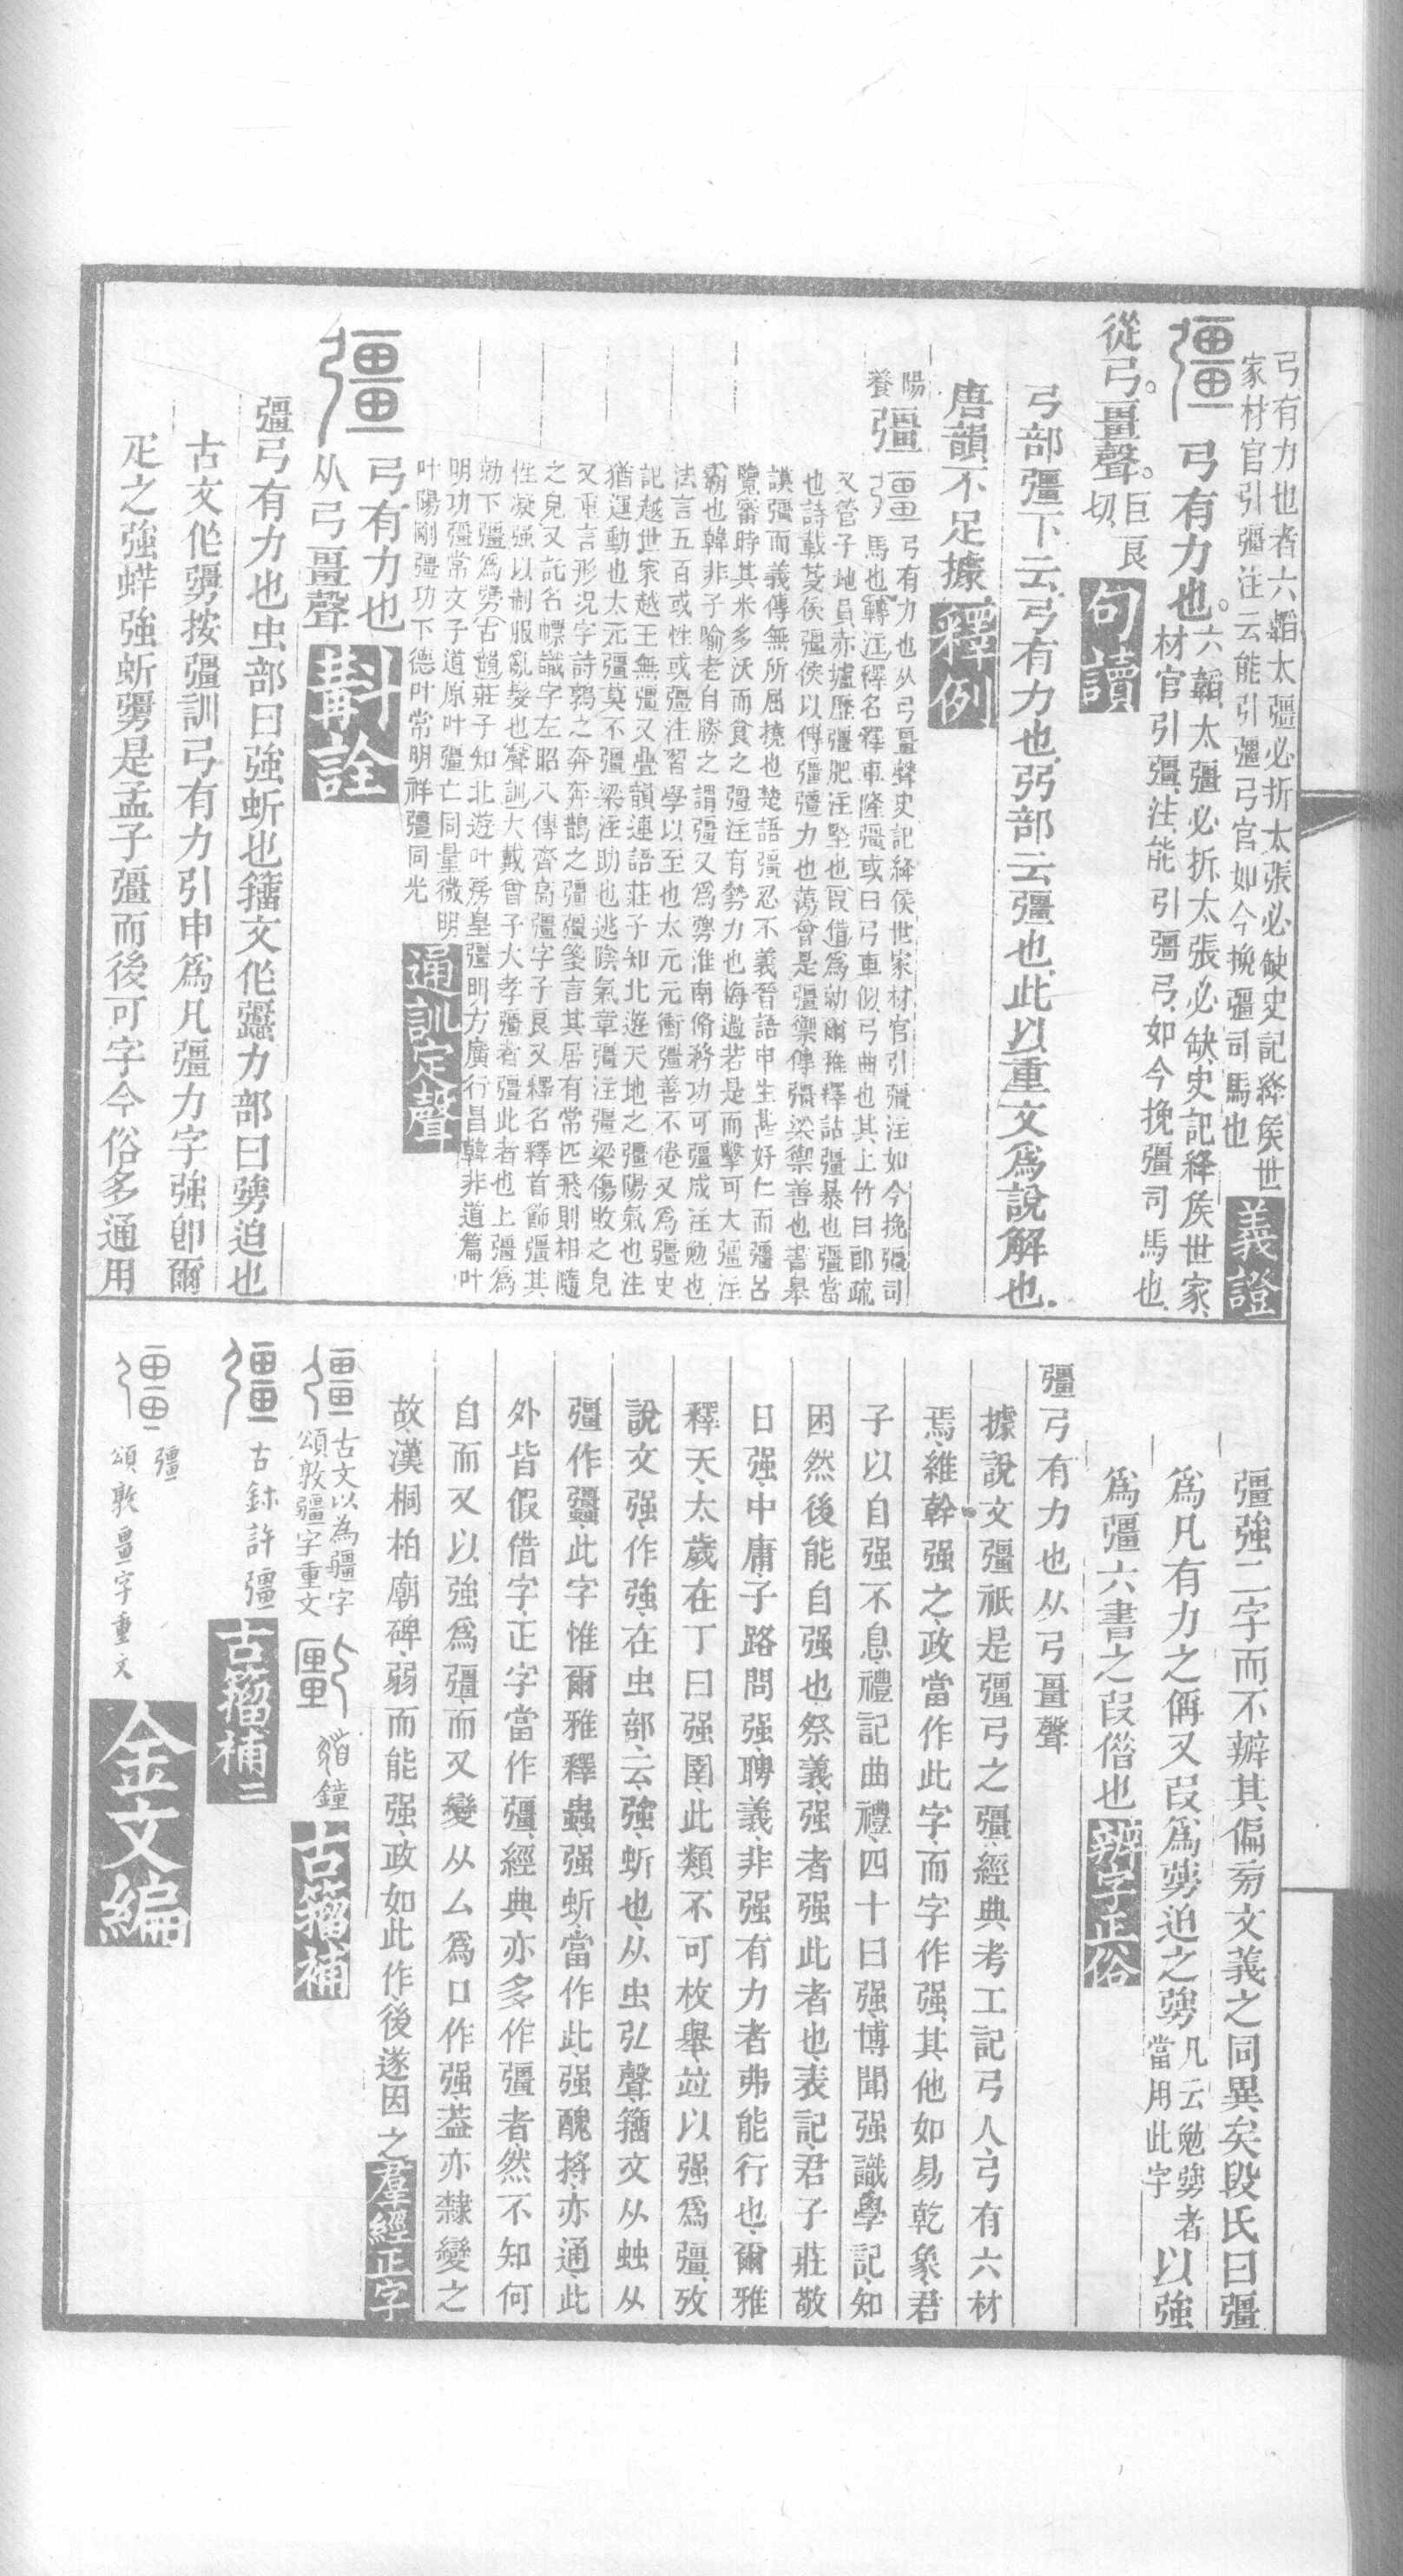 弓有力也者六韜太彊必折太張必缺史記絳侯世
家材官引彊注云能引彊弓官如今挽彊司馬也
義證
彊 弓有力也。六韜、太彊必折、太張必缺、史記絳侯世家、
材官引彊、注、能引彊弓、如今挽彊司馬也、
從弓。畺聲。巨良切、
句讀
弓部彊下云、弓有力也、弜部云彊也、此以重文爲說解也、
唐韻不足據、
釋例
陽養
彊 彊 弓有力也从弓畺聲史記絳侯世家材官引彊注如今挽彊司
馬也轉注釋名釋車隆彊或曰弓車似弓曲也其上竹曰郎疏
又管子地員赤壚歷彊肥注堅也叚借爲勍爾雅釋詁彊暴也彊當
也詩載芟侯彊侯以傳彊彊力也蕩曾是彊禦傳彊梁禦善也書皋
謨彊而義傳無所屈撓也楚語彊忍不義晉語申生甚好仁而彊呂
覽審時其米多沃而食之彊注有勢力也悔過若是而擊可大彊注
霸也韓非子喻老自勝之謂彊又爲勥淮南脩務功可彊成注勉也
法言五百或性或彊注習學以至也太元元衝彊善不倦又爲疆史
記越世家越王無彊又疊韻連語莊子知北遊天地之彊陽氣也注
猶運動也太元彊莫不彊梁注助也逃陰氣章彊注彊梁傷敗之皃
又重言形況字詩鶉之奔奔鵲之彊彊箋言其居有常匹飛則相隨
之皃又託名幖識字左昭八傳齊高彊字子良又釋名釋首飾彊其
性凝强以制服亂髮也聲訓大戴曾子大孝彊者彊此者也上彊爲
勍下彊爲勥古韻莊子知北遊叶房皇彊明方廣行昌韓非道篇叶
明功彊常文子道原叶彊亡同量微明
叶陽剛彊功下德叶常明祥彊同光
通訓定聲
彊 弓有力也
从弓畺聲
斠詮
彊弓有力也虫部曰強蚚也籀文作𧖑力部曰勥迫也
古文作勥按彊訓弓有力引申爲凡彊力字強卽爾
疋之強蛘強蚚勥是孟子彊而後可字今俗多通用
彊強二字而不辨其偏旁文義之同異矣段氏曰彊
爲凡有力之偁又叚爲勥迫之勥凡云勉勥者當用此字以強
爲彊六書之叚借也
辨字正俗
彊弓有力也从弓畺聲
據說文彊祇是彊弓之彊、經典、考工記弓人、弓有六材
焉、維幹强之、政當作此字、而字作强、其他如易乾象、君
子以自强不息、禮記曲禮、四十曰强、博聞强識、學記、知
困然後能自强也、祭義、强者强此者也、表記、君子莊敬
日强、中庸、子路問强、聘義、非强有力者弗能行也、爾雅
釋天、太歲在丁曰强圉、此類不可枚舉、竝以强爲彊、攷
說文强、作強、在虫部、云、強、蚚也、从虫弘聲、籀文从䖵从
彊作𧖑、此字惟爾雅釋蟲、强蚚、當作此、强醜捋、亦通、此
外皆假借字、正字當作彊、經典、亦多作彊者、然不知何
自而又以強爲彊、而又變从厶爲口作强、葢亦隸變之
故、漢桐柏廟碑、弱而能强、政如此作、後遂因之
羣經正字
彊 古文以為疆字
頌敦疆字重文
遟鐘
古籀補
彊 古鉥許彊
古籀補二
彊 彊
頌敦畺字重文
金文編